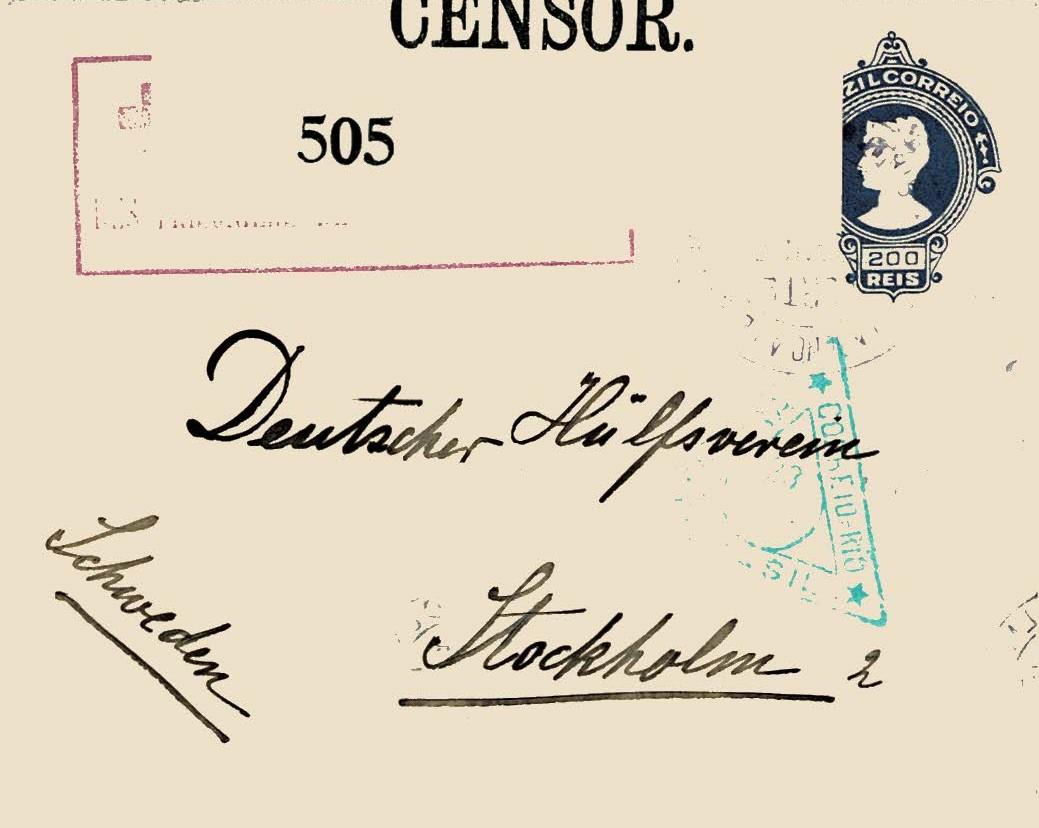 CENSOR.
505
ZIL CORREIO
200
REIS
Deutscher Hülfsverein
CORREIO-RIO
Schweden
Stockholm 2